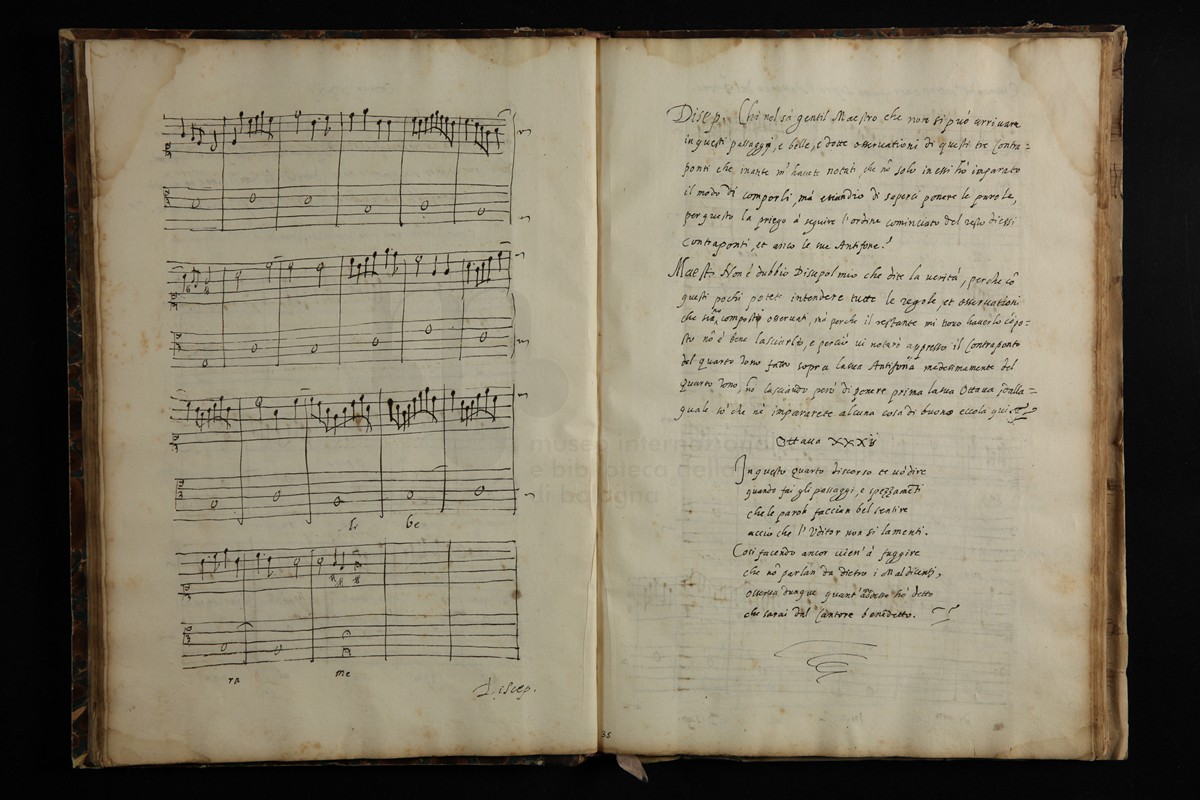 li be
ra me
Discep.
35
Discep. Chi nol sà gentil Maestro che non si può arrivare
in questi passaggi, e belle, e dotte osservationi di questi tre Contra=
ponti che inante m'havete notati, che nõ solo in essi hò imparato
il modo di comporli, mà etiandio di saperci ponere le parole,
per questo la priego à seguire l'ordine cominciato del resto di essi
Contraponti, et anco le sue Antifone.
Maest. Non è dubbio Discepol mio che dite la verità, perche cõ
questi pochi potete intendere tutte le regole, et osservationi
che composti osservati, mà perche il restante mi trovo haverlo cõpo=
sto nõ è bene lasciarlo, e perciò vi notarò appresso il Contraponto
del quarto tono fatto sopra la sua Antifona medesimamente del
quarto tono, nõ lasciando però di ponere prima la sua Ottava dalla
quale sò che nè impararete alcuna cosa di buono eccola qui
Ottava XXXij
In questo quarto discorso te vò dire
quando fai gli passaggi, e spezzamẽti
che le parole faccian bel sentire
acciò che l'Uditor non si lamenti.
Così facendo ancor vien' à fuggire
che nõ parlan da dietro i Maldicenti,
osserva dunque quant' adesso hò detto
che sarai dal Cantore benedetto.
museo internazionale
e biblioteca della
di bologna